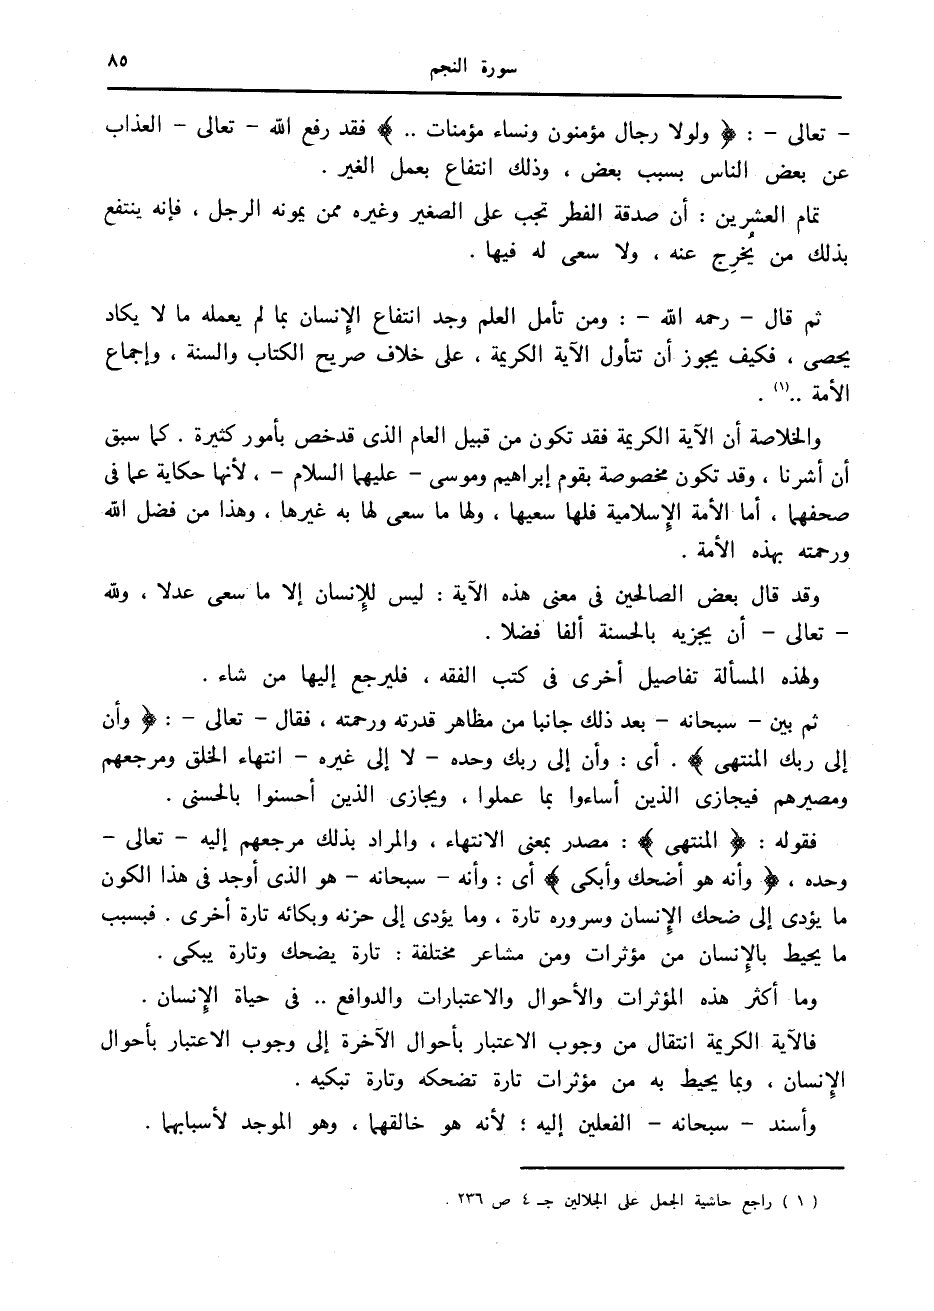 سورة النجم
٨٥
– تعالى – : ﴿ ولولا رجال مؤمنون ونساء مؤمنات .. ﴾ فقد رفع الله – تعالى – العذاب
عن بعض الناس بسبب بعض ، وذلك انتفاع بعمل الغير .
تمام العشرين : أن صدقة الفطر تجب على الصغير وغيره ممن يمونه الرجل ، فإنه ينتفع
بذلك من يُخرِج عنه ، ولا سعى له فيها .
ثم قال – رحمه الله – : ومن تأمل العلم وجد انتفاع الإنسان بما لم يعمله ما لا يكاد
يحصى ، فكيف يجوز أن تتأول الآية الكريمة ، على خلاف صريح الكتاب والسنة ، وإجماع
الأمة ..(١) .
والخلاصة أن الآية الكريمة فقد تكون من قبيل العام الذى قدخص بأمور كثيرة . كما سبق
أن أشرنا ، وقد تكون مخصوصة بقوم إبراهيم وموسى – عليهما السلام – ، لأنها حكاية عما فى
صحفهما ، أما الأمة الإسلامية فلها سعيها ، ولها ما سعى لها به غيرها ، وهذا من فضل الله
ورحمته بهذه الأمة .
وقد قال بعض الصالحين فى معنى هذه الآية : ليس للإنسان إلا ما سعى عدلا ، ولله
– تعالى – أن يجزيه بالحسنة ألفا فضلا .
ولهذه المسألة تفاصيل أخرى فى كتب الفقه ، فليرجع إليها من شاء .
ثم بين – سبحانه – بعد ذلك جانبا من مظاهر قدرته ورحمته ، فقال – تعالى – : ﴿ وأن
إلى ربك المنتهى ﴾ . أى : وأن إلى ربك وحده – لا إلى غيره – انتهاء الخلق ومرجعهم
ومصيرهم فيجازى الذين أساءوا بما عملوا ، ويجازى الذين أحسنوا بالحسنى .
فقوله : ﴿ المنتهى ﴾ : مصدر بمعنى الانتهاء ، والمراد بذلك مرجعهم إليه – تعالى –
وحده ، ﴿ وأنه هو أضحك وأبكى ﴾ أى : وأنه – سبحانه – هو الذى أوجد فى هذا الكون
ما يؤدى إلى ضحك الإنسان وسروره تارة ، وما يؤدى إلى حزنه وبكائه تارة أخرى . فبسبب
ما يحيط بالإنسان من مؤثرات ومن مشاعر مختلفة : تارة يضحك وتارة يبكى .
وما أكثر هذه المؤثرات والأحوال والاعتبارات والدوافع .. فى حياة الإنسان .
فالآية الكريمة انتقال من وجوب الاعتبار بأحوال الآخرة إلى وجوب الاعتبار بأحوال
الإنسان ، وبما يحيط به من مؤثرات تارة تضحكه وتارة تبكيه .
وأسند – سبحانه – الفعلين إليه ؛ لأنه هو خالقهما ، وهو الموجد لأسبابهما .
( ١ ) راجع حاشية الجمل على الجلالين جـ ٤ ص ٢٣٦ .